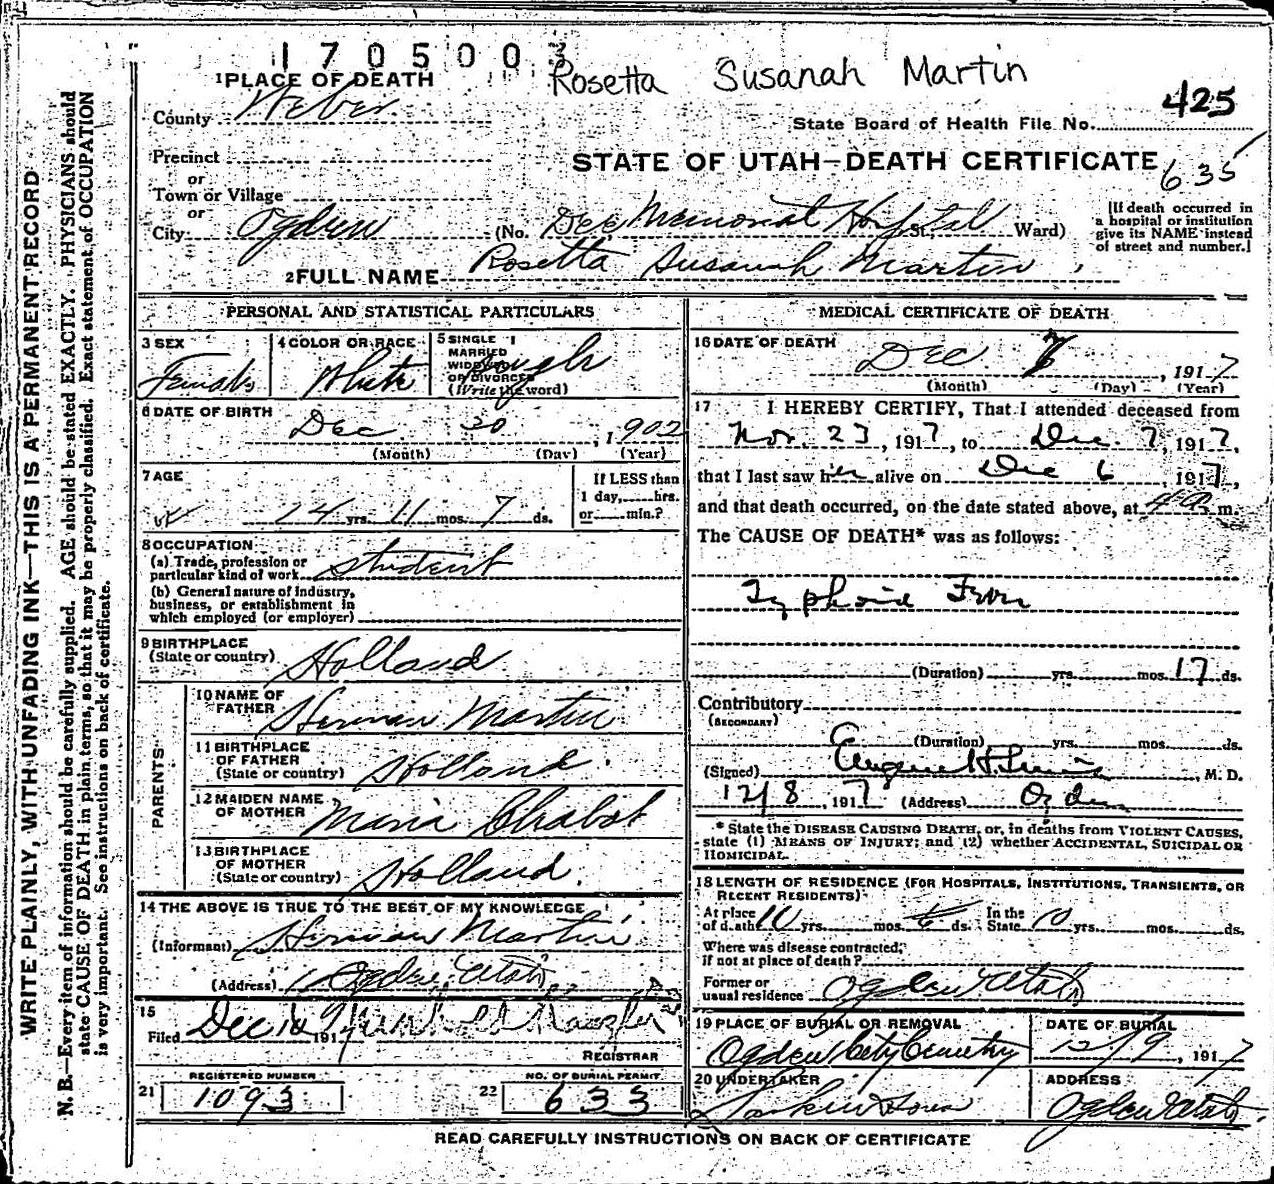 1705003
Rosetta Susanah Martin
1 PLACE OF DEATH
County Weber
425
State Board of Health File No.
Precinct
or
STATE OF UTAH—DEATH CERTIFICATE
635
Town or Village
or
City Ogden (No. Dee Memorial Hospital St.; Ward)
[If death occurred in
a hospital or institution
give its NAME instead
of street and number.]
2 FULL NAME Rosetta Susanah Martin
PERSONAL AND STATISTICAL PARTICULARS
3 SEX
Female
4 COLOR OR RACE
White
5 SINGLE
MARRIED
WIDOWED
OR DIVORCED
(Write the word)
Single
6 DATE OF BIRTH
Dec. 30, 1902
(Month) (Day) (Year)
7 AGE
14 yrs. 11 mos. 7 ds.
If LESS than
1 day, hrs.
or min.?
8 OCCUPATION
(a) Trade, profession or
particular kind of work student
(b) General nature of industry,
business, or establishment in
which employed (or employer)
9 BIRTHPLACE
(State or country) Holland
PARENTS
10 NAME OF
FATHER Herman Martin
11 BIRTHPLACE
OF FATHER
(State or country) Holland.
12 MAIDEN NAME
OF MOTHER Maria Chabot
13 BIRTHPLACE
OF MOTHER
(State or country) Holland.
14 THE ABOVE IS TRUE TO THE BEST OF MY KNOWLEDGE
(Informant) Herman Martin
(Address) Ogden, Utah
15
Filed Dec 10, 1917
REGISTRAR
21 REGISTERED NUMBER
1093
22 NO. OF BURIAL PERMIT
633
MEDICAL CERTIFICATE OF DEATH
16 DATE OF DEATH
Dec. 7, 1917
(Month) (Day) (Year)
17 I HEREBY CERTIFY, That I attended deceased from
Nov. 23, 1917, to Dec. 7, 1917,
that I last saw her alive on Dec 6, 1917,
and that death occurred, on the date stated above, at 4 a m.
The CAUSE OF DEATH* was as follows:
Typhoid Fever
(Duration) yrs. mos. 17 ds.
Contributory
(SECONDARY)
(Duration) yrs. mos. ds.
(Signed) Eugene H. , M. D.
12/8, 1917 (Address) Ogden
* State the DISEASE CAUSING DEATH, or, in deaths from VIOLENT CAUSES,
state (1) MEANS OF INJURY; and (2) whether ACCIDENTAL, SUICIDAL OR
HOMICIDAL.
18 LENGTH OF RESIDENCE (FOR HOSPITALS, INSTITUTIONS, TRANSIENTS, OR
RECENT RESIDENTS)
At place
of death 10 yrs. mos. ds. In the
State 10 yrs. mos. ds.
Where was disease contracted,
if not at place of death?
Former or
usual residence Ogden Utah
19 PLACE OF BURIAL OR REMOVAL
Ogden City Cemetry
DATE OF BURIAL
12/9, 1917
20 UNDERTAKER
Larkin & Sons
ADDRESS
Ogden Utah
READ CAREFULLY INSTRUCTIONS ON BACK OF CERTIFICATE
WRITE PLAINLY, WITH UNFADING INK—THIS IS A PERMANENT RECORD
N. B.—Every item of information should be carefully supplied. AGE should be stated EXACTLY. PHYSICIANS should
state CAUSE OF DEATH in plain terms, so that it may be properly classified. Exact statement of OCCUPATION
is very important. See instructions on back of certificate.